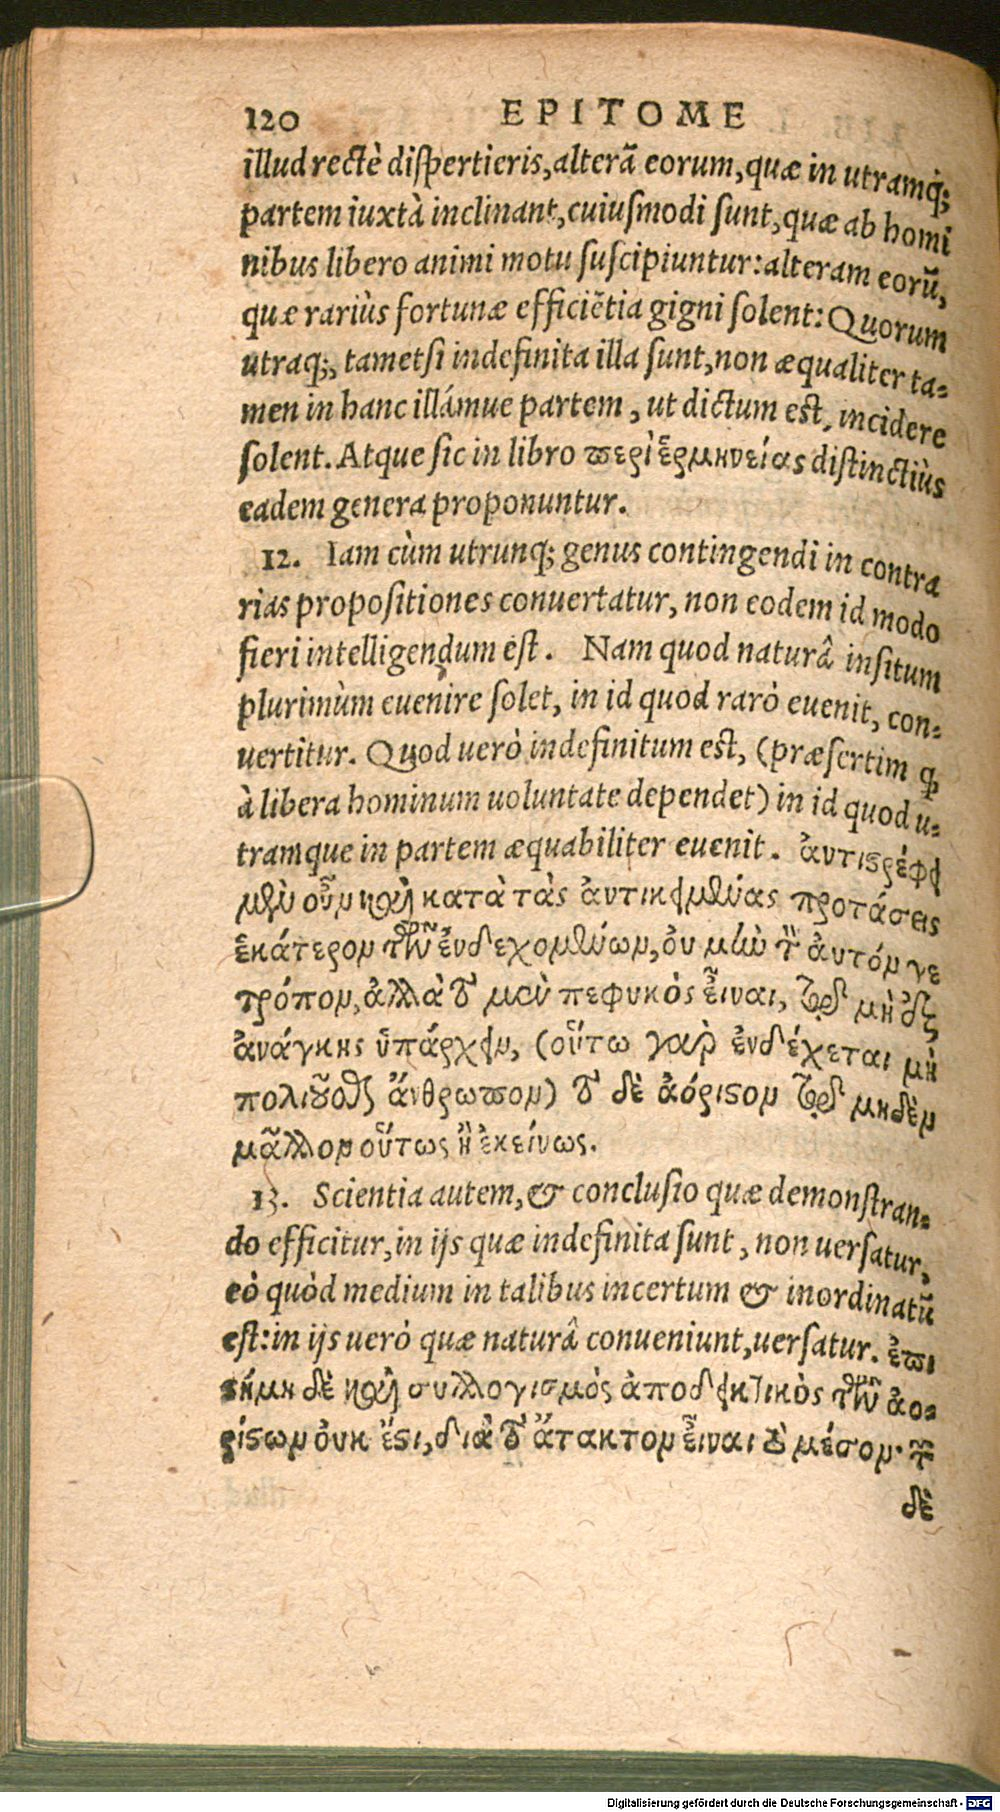 120 EPITOME
illud rectè dispertieris, alterã eorum, quæ in utramq́;
partem iuxtà inclinant, cuiusmodi sunt, quæ ab homi
nibus libero animi motu suscipiuntur: alteram eorũ,
quæ rariùs fortunæ efficiẽtia gigni solent: Quorum
utraq;, tametsi indefinita illa sunt, non æqualiter ta-
men in hanc illámue partem, ut dictum est, incidere
solent. Atque sic in libro περὶ ἑρμηνείας distinctiùs
eadem genera proponuntur.
12. Iam cùm utrunq; genus contingendi in contra
rias propositiones conuertatur, non eodem id modo
fieri intelligendum est. Nam quod naturâ insitum
plurimùm euenire solet, in id quod rarò euenit, con-
uertitur. Quod uerò indefinitum est, (præsertim ꝙ
à libera hominum uoluntate dependet) in id quod u-
tramque in partem æquabiliter euenit. ἀντιστρέφει
μὲν οὖν καὶ κατὰ τὰς ἀντικειμένας προτάσεις
ἑκάτερον τῶν ἐνδεχομένων, οὐ μὴν τὸν αὐτόν γε
τρόπον, ἀλλὰ τὸ μὲν πεφυκὸς εἶναι, τῷ μὴ ἐξ
ἀνάγκης ὑπάρχειν, (οὕτω γὰρ ἐνδέχεται μὴ
πολιοῦσθαι ἄνθρωπον) τὸ δὲ ἀόριστον τῷ μηδὲν
μᾶλλον οὕτως ἢ ἐκείνως.
13. Scientia autem, & conclusio quæ demonstran-
do efficitur, in ijs quæ indefinita sunt, non uersatur,
eò quòd medium in talibus incertum & inordinatũ
est: in ijs uerò quæ naturâ conueniunt, uersatur. ἐπι
στήμη δὲ καὶ συλλογισμὸς ἀποδεικτικὸς τῶν ἀο-
ρίστων οὐκ ἔστι, διὰ τὸ ἄτακτον εἶναι τὸ μέσον· τῶν
δὲ
Digitalisierung gefördert durch die Deutsche Forschungsgemeinschaft - DFG